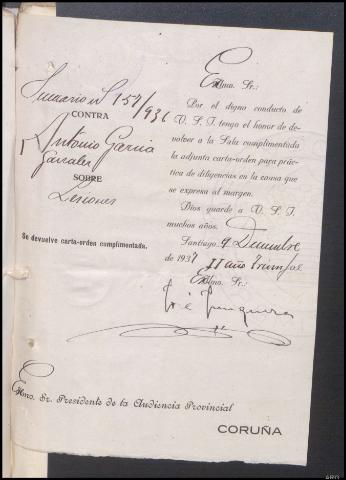 Sumario nº 157/936
CONTRA
Antonio Garcia
Gonzalez
SOBRE
Lesiones
Se devuelve carta-orden cumplimentada.
Exmo. Sr.:
Por el digno conducto de
V. S. I. tengo el honor de de-
volver a la Sala cumplimentada
la adjunta carta-orden para prác-
tica de diligencias en la causa que
se expresa al margen.
Dios guarde a V. S. I.
muchos años.
Santiago 9 Diciembre
de 1937 II año Triunfal
Exmo. Sr.:
Exmo. Sr. Presidente de la Audiencia Provincial
CORUÑA